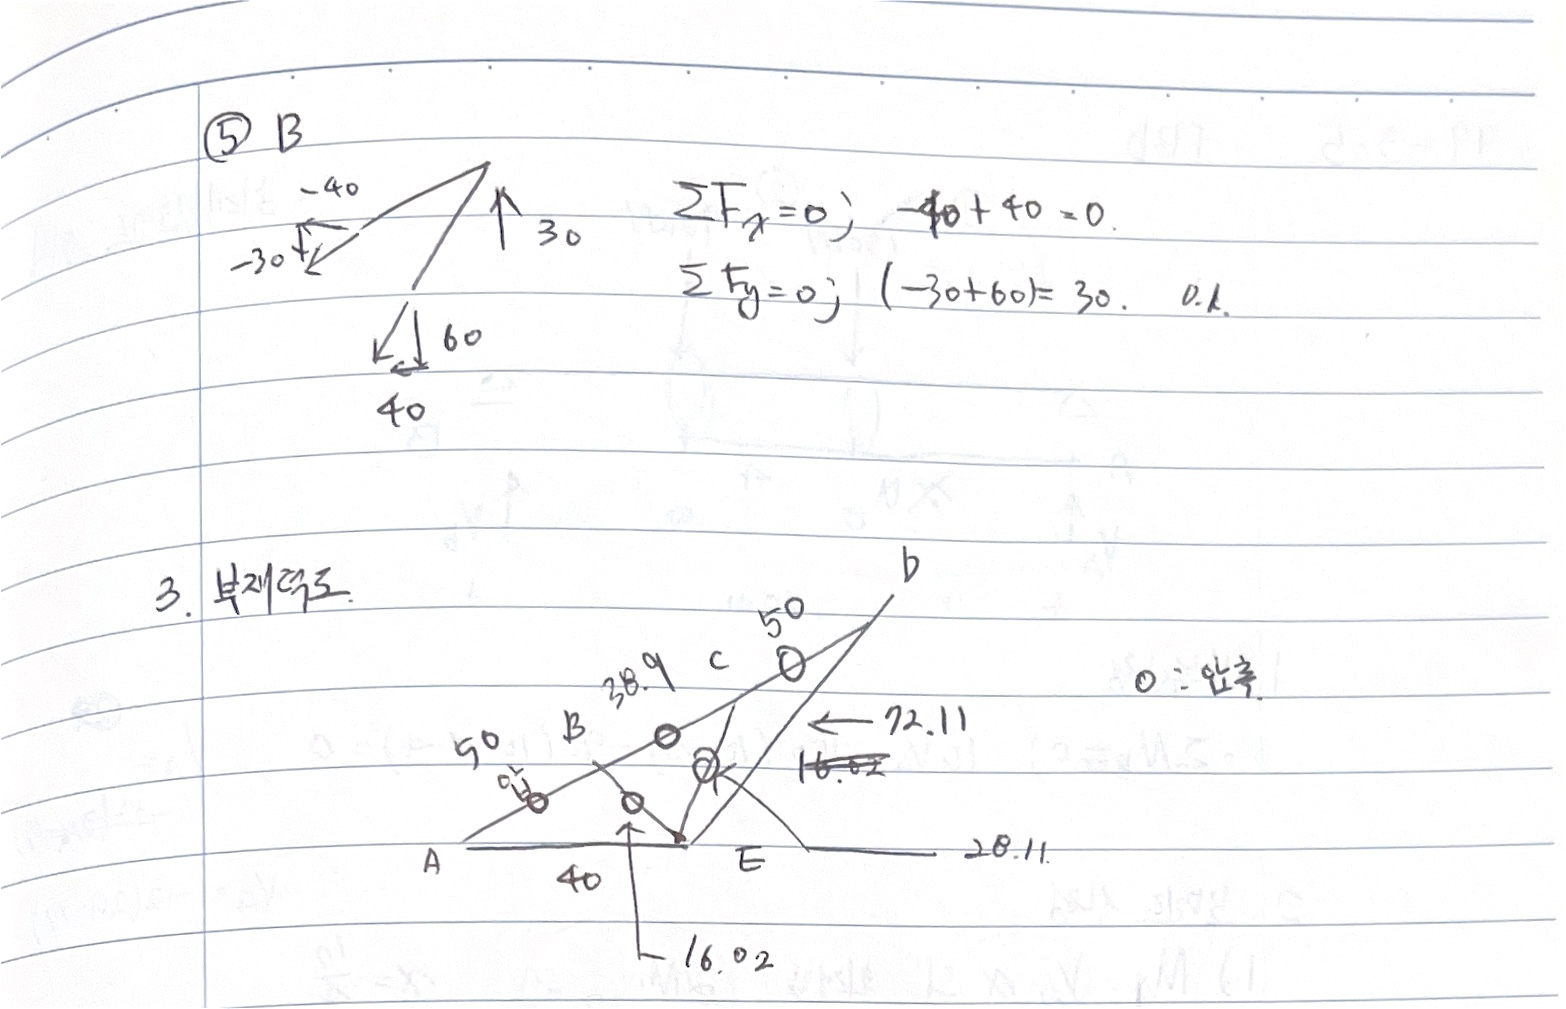 ⑤ B
-40
-30
30
60
40
ΣFx=0; -40+40=0.
ΣFy=0; (-30+60)=30. O.K.
3. 부재력도
D
50
C
38.9
B
50
압
O : 압축
72.11
16.02
A
40
E
28.11
16.02